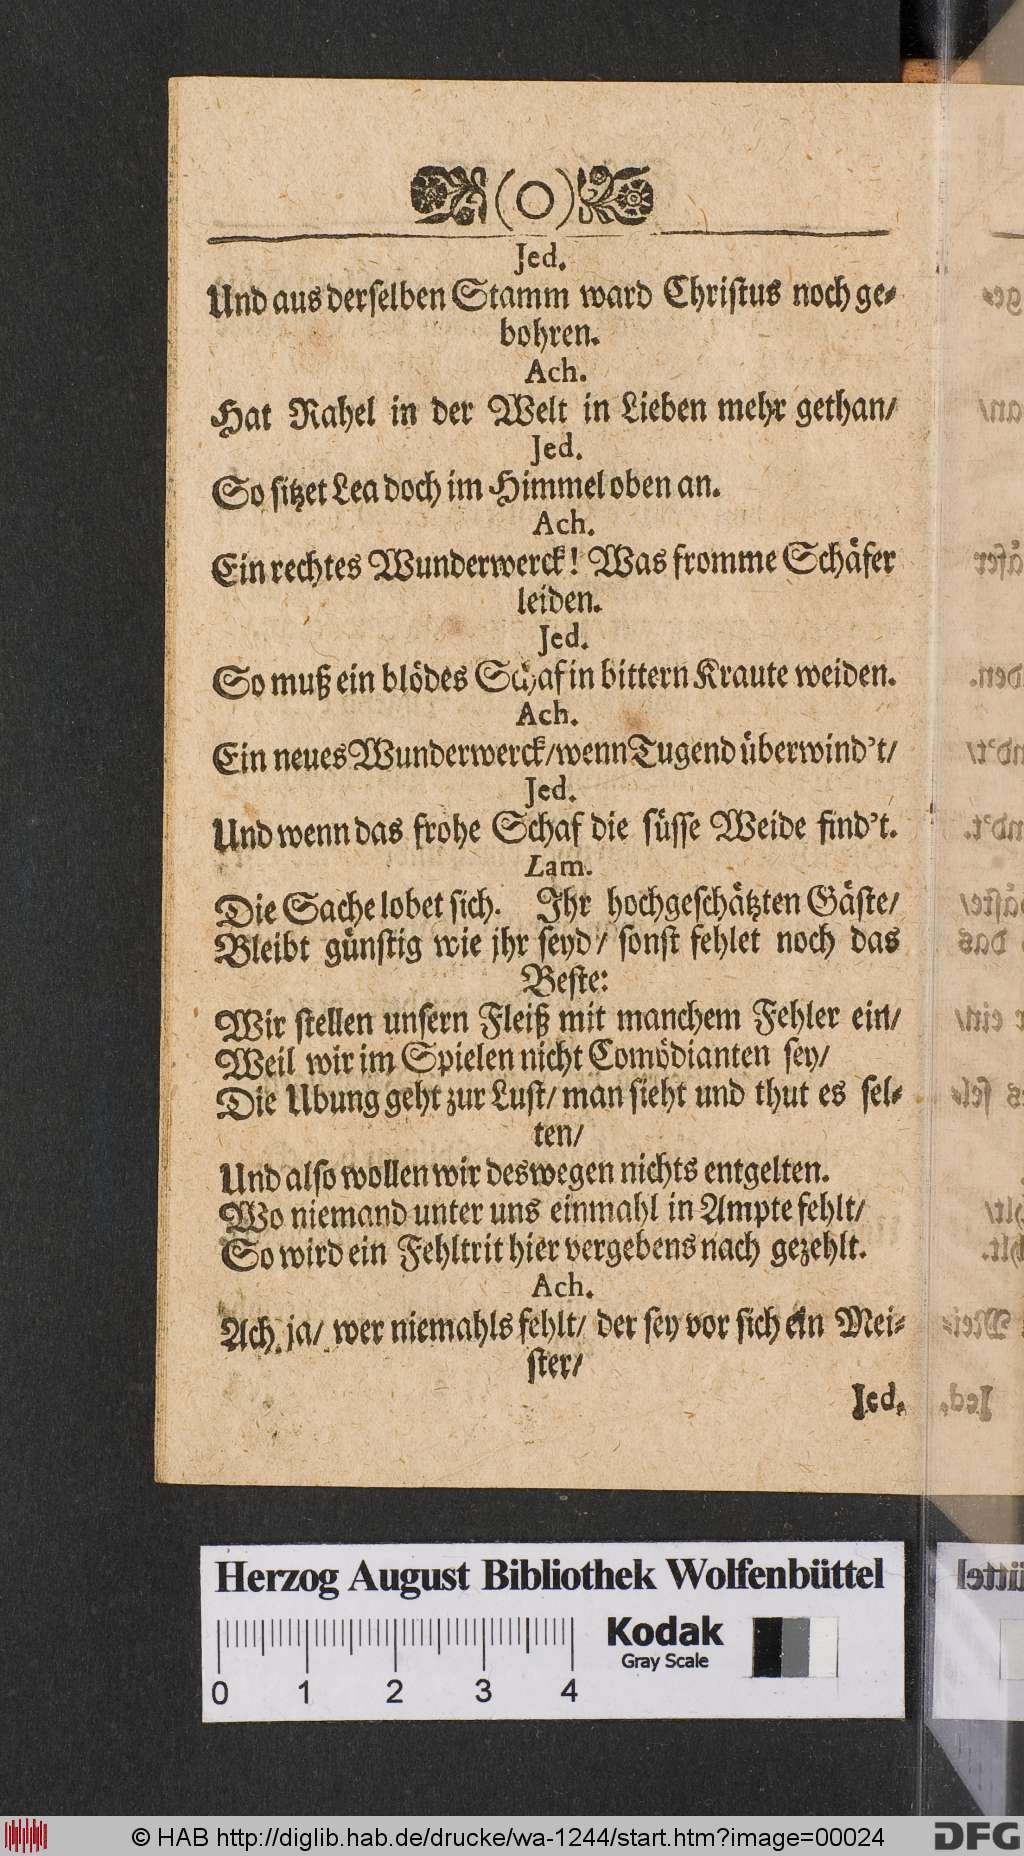 (O)
Jed.
Und aus derselben Stamm ward Christus noch ge⸗
bohren.
Ach.
Hat Rahel in der Welt in Lieben mehr gethan/
Jed.
So sitzet Lea doch im Himmel oben an.
Ach.
Ein rechtes Wunderwerck! Was fromme Schäfer
leiden.
Jed.
So muß ein blödes Schaf in bittern Kraute weiden.
Ach.
Ein neues Wunderwerck/ wenn Tugend überwind't/
Jed.
Und wenn das frohe Schaf die süsse Weide find't.
Lam.
Die Sache lobet sich. Ihr hochgeschätzten Gäste/
Bleibt günstig wie jhr seyd/ sonst fehlet noch das
Beste:
Wir stellen unsern Fleiß mit manchem Fehler ein/
Weil wir im Spielen nicht Comödianten sey/
Die Ubung geht zur Lust/ man sieht und thut es sel⸗
ten/
Und also wollen wir deswegen nichts entgelten.
Wo niemand unter uns einmahl in Ampte fehlt/
So wird ein Fehltrit hier vergebens nach gezehlt.
Ach.
Ach ja/ wer niemahls fehlt/ der sey vor sich ein Mei⸗
ster/
Jed.
Herzog August Bibliothek Wolfenbüttel
Kodak
Gray Scale
0 1 2 3 4
© HAB http://diglib.hab.de/drucke/wa-1244/start.htm?image=00024
DFG